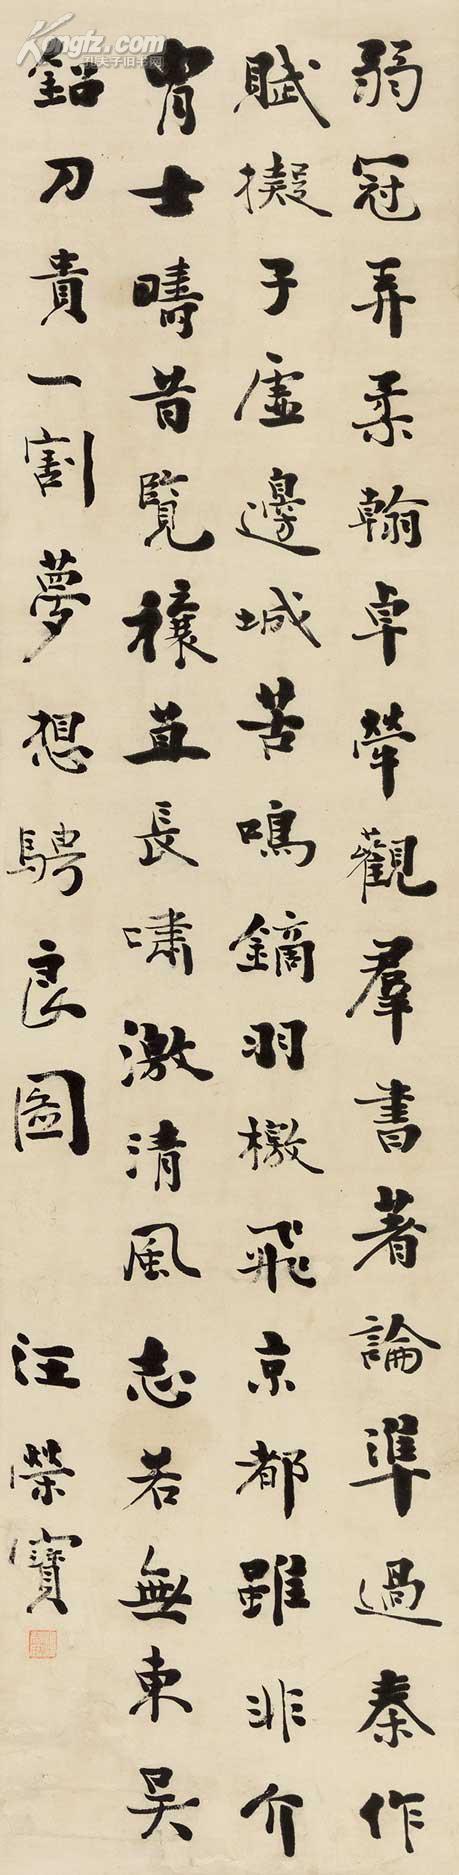 弱冠弄柔翰卓犖觀羣書著論準過秦作
賦擬子虛邊城苦鳴鏑羽檄飛京都雖非介
胄士疇昔覽穰苴長嘯激清風志若無東吳
鉛刀貴一割夢想騁良圖
汪榮寶
Kongfz.com
孔夫子旧书网